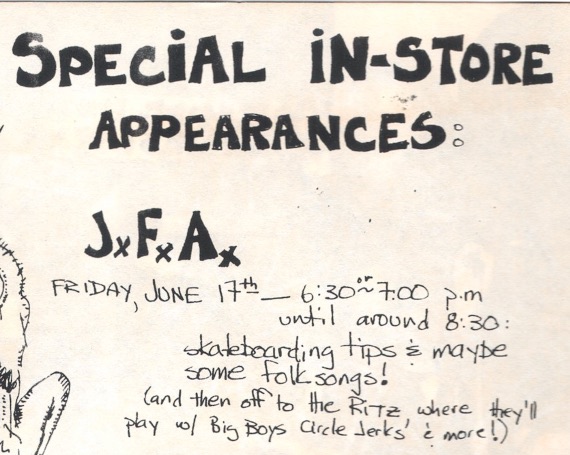 SPECiAL iN-STORE
APPEARANCES:
JxFxAx
FRIDAY, JUNE 17th — 6:30 or ~ 7:00 p.m
until around 8:30:
skateboarding tips & maybe
some folksongs!
(and then off to the RiTZ where they'll
play w/ Big Boys Circle Jerks' & more!)